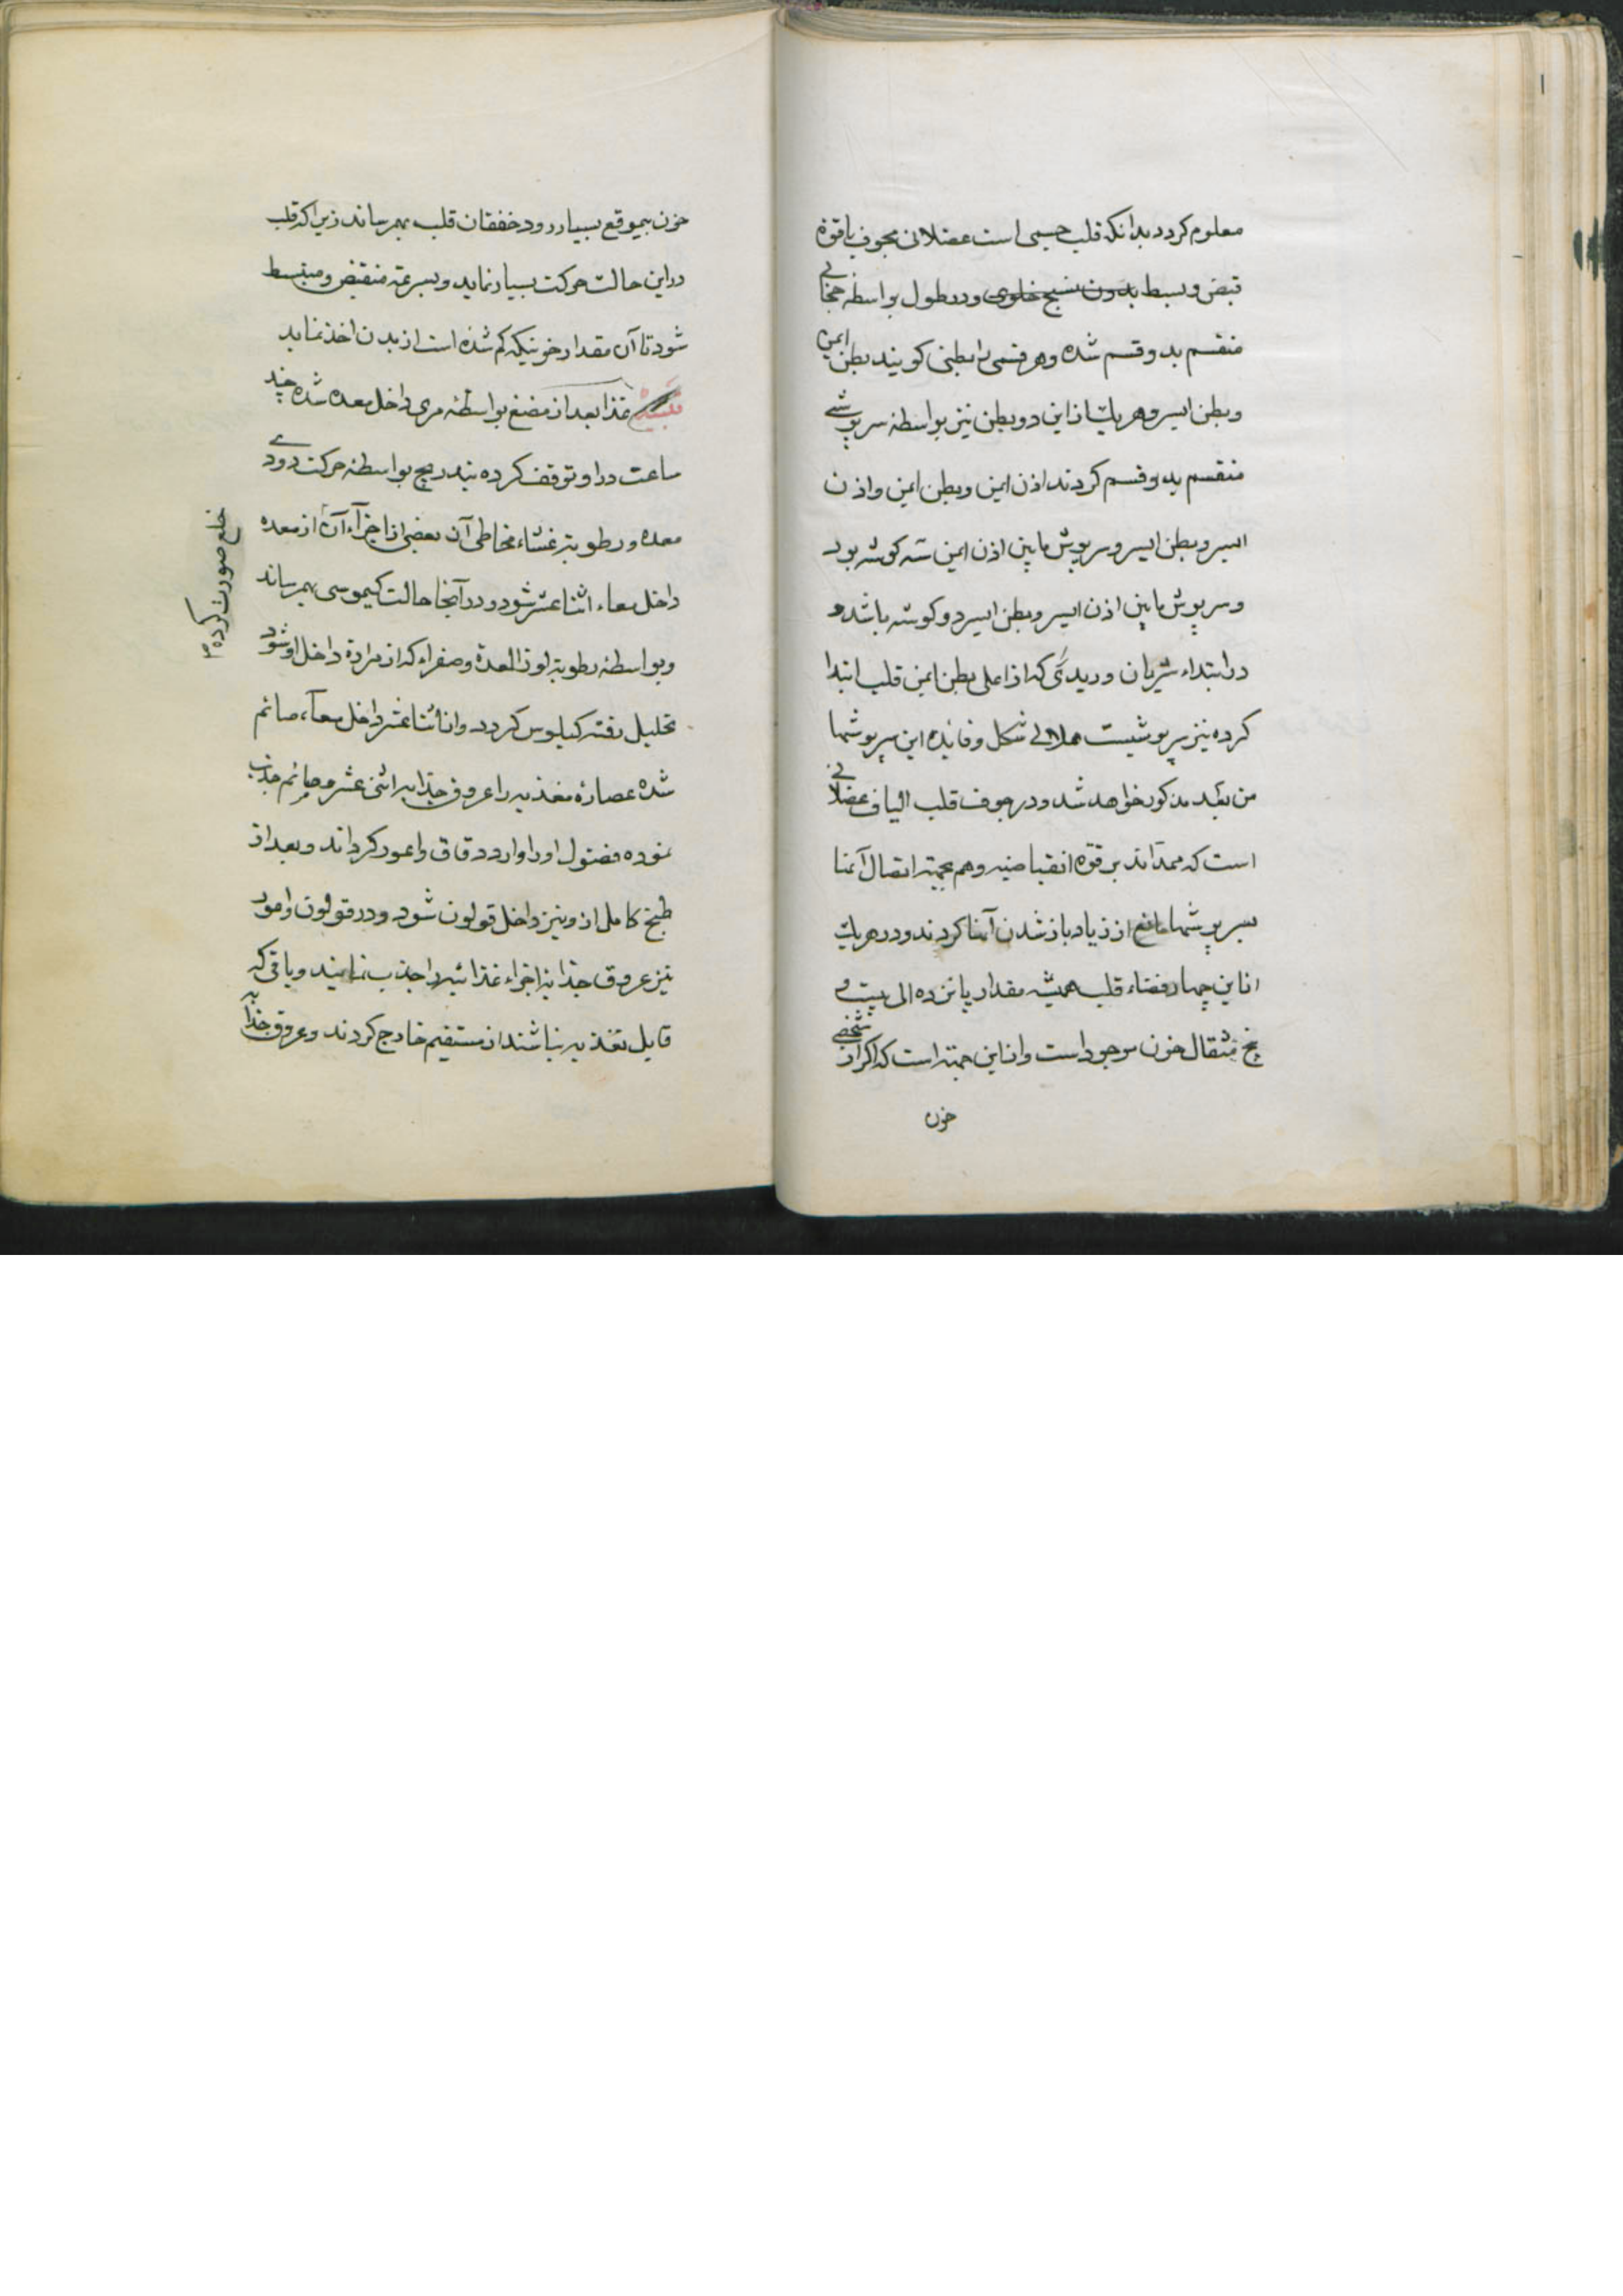 معلوم کردد بدانکه قلب جسمی است عضلانی مجوف با قوة
قبض و بسط بدون نسیج خلوی و در طول بواسطهٔ حجابی
منقسم بدو قسم شده و هر قسمی را بطنی کویند بطن ایمن
و بطن ایسر و هر یک از این دو بطن نیز بواسطهٔ سرپوشی
منقسم بدو قسم کردند اذن ایمن و بطن ایمن و اذن
ایسر و بطن ایسر و سرپوش مابین اذن ایمن سه کوشه بود
و سرپوش مابین اذن ایسر و بطن ایسر دو کوشه باشد و
در ابتداء شریان وریدی که از اعلی بطن ایمن قلب ابتدا
کرده نیز سرپوشیست هلالی شکل و فایدهٔ این سرپوشها
من بعد مذکور خواهد شد و در جوف قلب الیاف عضلانی
است که ممدّاند بر قوّه انقباضیه و هم بجهة اتصال آنها
بسرپوشها مانع از زیاد باز شدن آنها کردند و در هر یک
از این چهار فضاء قلب همیشه مقدار پانزده الی بیست و
پنج مثقال خون موجود است و از این جهة است که اکر از شخصی
خون
خون بیموقع بسیار رود خفقان قلب بهمرساند زیرا که قلب
در این حالت حرکت بسیار نماید و بسرعة منقبض و منبسط
شود تا آن مقدار خونیکه کم شده است از بدن اخذ نماید
غذا بعد از مضغ بواسطهٔ مری داخل معده شده چند
ساعت در او توقف کرده بتدریج بواسطهٔ حرکت دودی
معده و رطوبة غشاء مخاطی آن بعضی از اجزآء آن از معده
خلع صورت کرده
داخل معاء اثنا عشر شود و در آنجا حالت کیموسی بهمرساند
و بواسطهٔ رطوبة لوز المعدة و صفراء که از مرارة داخل او شود
تحلیل رفته کیلوس کردد و از اثنا عشر داخل معآء صائم
شده عصارهٔ مغذیه را عروق جذابهٔ اثنی عشر و صائم جذب
نموده فضول او را وارد دقاق و اعور کرداند و بعد از
طبخ کامل از و نیز داخل قولون شود و در قولون و اعور
نیز عروق جذابه اجزاء غذائیه را جذب نمایند و باقی که
قابل تغذیه نباشند از مستقیم خارج کردند و عروق جذابه